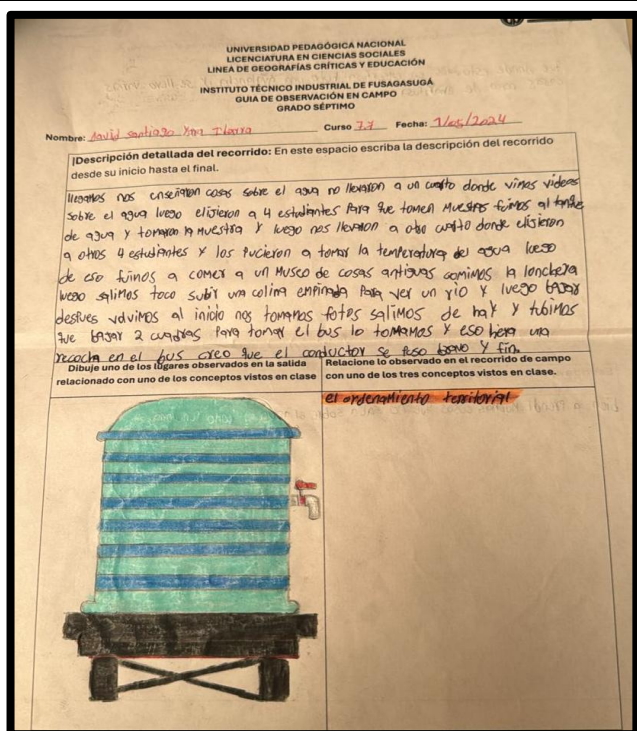 UNIVERSIDAD PEDAGÓGICA NACIONAL
LICENCIATURA EN CIENCIAS SOCIALES
LINEA DE GEOGRAFÍAS CRÍTICAS Y EDUCACIÓN
INSTITUTO TÉCNICO INDUSTRIAL DE FUSAGASUGÁ
GUIA DE OBSERVACIÓN EN CAMPO
GRADO SÉPTIMO
Nombre: David santiago Ibarra Curso 7.7 Fecha: 1/05/2024
|Descripción detallada del recorrido: En este espacio escriba la descripción del recorrido
desde su inicio hasta el final.
llegamos nos enseñaron cosas sobre el agua no llevaron a un cuarto donde vimos videos
sobre el agua luego elijieron a 4 estudiantes Para que tomen Muestras fuimos al tanque
de agua y tomaron la Muestra y luego nos llevaron a otro cuarto donde elijieron
a otros 4 estudiantes y los pucieron a tomar la temperatura del agua luego
de eso fuimos a comer a un Museo de cosas antiguas comimos la lonchera
luego salimos toco subir una colina empinada Para ver un rio y luego bajar
despues volvimos al inicio nos tomamos fotos salimos de hay y tubimos
que bajar 2 cuadras Para tomar el bus lo tomamos y eso hera una
recocha en el bus creo que el conductor se puso bravo y fin.
Dibuje uno de los lugares observados en la salida
relacionado con uno de los conceptos vistos en clase
Relacione lo observado en el recorrido de campo
con uno de los tres conceptos vistos en clase.
el ordenamiento territorial